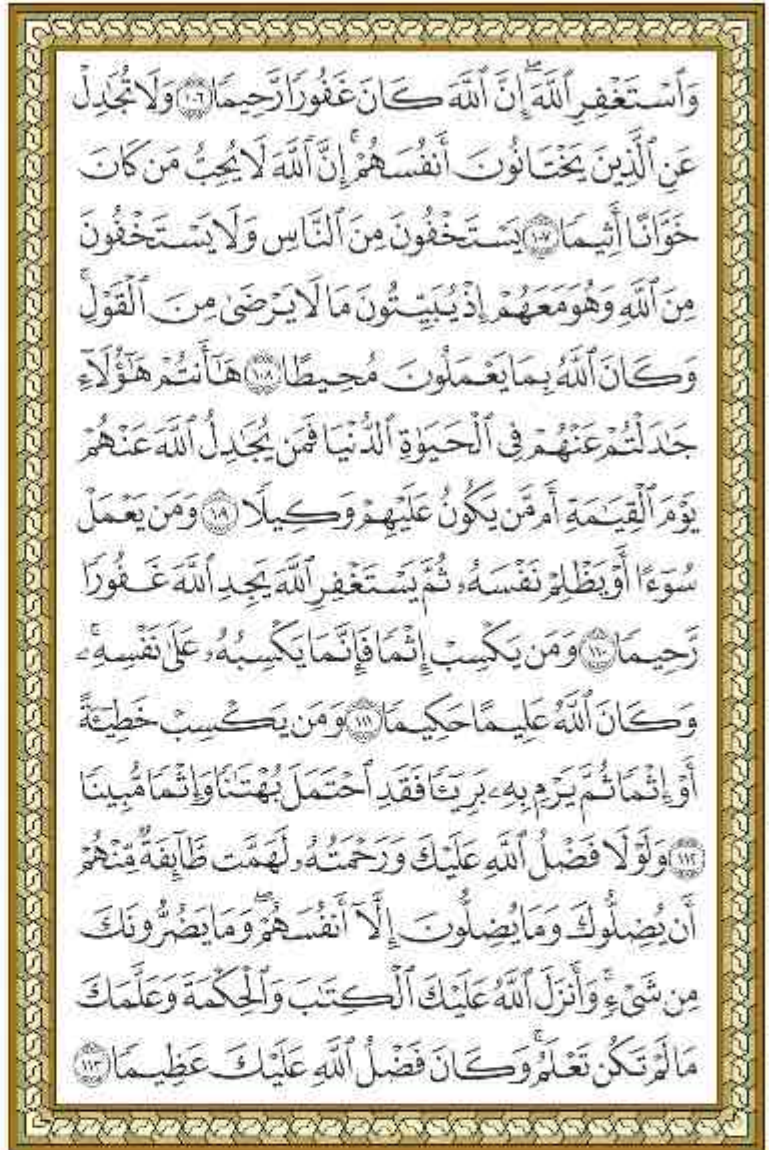 وَٱسۡتَغۡفِرِ ٱللَّهَۖ إِنَّ ٱللَّهَ كَانَ غَفُورٗا رَّحِيمٗا ١٠٦ وَلَا تُجَٰدِلۡ
عَنِ ٱلَّذِينَ يَخۡتَانُونَ أَنفُسَهُمۡۚ إِنَّ ٱللَّهَ لَا يُحِبُّ مَن كَانَ
خَوَّانًا أَثِيمٗا ١٠٧ يَسۡتَخۡفُونَ مِنَ ٱلنَّاسِ وَلَا يَسۡتَخۡفُونَ
مِنَ ٱللَّهِ وَهُوَ مَعَهُمۡ إِذۡ يُبَيِّتُونَ مَا لَا يَرۡضَىٰ مِنَ ٱلۡقَوۡلِۚ
وَكَانَ ٱللَّهُ بِمَا يَعۡمَلُونَ مُحِيطًا ١٠٨ هَٰٓأَنتُمۡ هَٰٓؤُلَآءِ
جَٰدَلۡتُمۡ عَنۡهُمۡ فِي ٱلۡحَيَوٰةِ ٱلدُّنۡيَا فَمَن يُجَٰدِلُ ٱللَّهَ عَنۡهُمۡ
يَوۡمَ ٱلۡقِيَٰمَةِ أَم مَّن يَكُونُ عَلَيۡهِمۡ وَكِيلٗا ١٠٩ وَمَن يَعۡمَلۡ
سُوٓءًا أَوۡ يَظۡلِمۡ نَفۡسَهُۥ ثُمَّ يَسۡتَغۡفِرِ ٱللَّهَ يَجِدِ ٱللَّهَ غَفُورٗا
رَّحِيمٗا ١١٠ وَمَن يَكۡسِبۡ إِثۡمٗا فَإِنَّمَا يَكۡسِبُهُۥ عَلَىٰ نَفۡسِهِۦۚ
وَكَانَ ٱللَّهُ عَلِيمًا حَكِيمٗا ١١١ وَمَن يَكۡسِبۡ خَطِيٓـَٔةً
أَوۡ إِثۡمٗا ثُمَّ يَرۡمِ بِهِۦ بَرِيٓـٔٗا فَقَدِ ٱحۡتَمَلَ بُهۡتَٰنٗا وَإِثۡمٗا مُّبِينٗا
١١٢ وَلَوۡلَا فَضۡلُ ٱللَّهِ عَلَيۡكَ وَرَحۡمَتُهُۥ لَهَمَّت طَّآئِفَةٞ مِّنۡهُمۡ
أَن يُضِلُّوكَ وَمَا يُضِلُّونَ إِلَّآ أَنفُسَهُمۡۖ وَمَا يَضُرُّونَكَ
مِن شَيۡءٖۚ وَأَنزَلَ ٱللَّهُ عَلَيۡكَ ٱلۡكِتَٰبَ وَٱلۡحِكۡمَةَ وَعَلَّمَكَ
مَا لَمۡ تَكُن تَعۡلَمُۚ وَكَانَ فَضۡلُ ٱللَّهِ عَلَيۡكَ عَظِيمٗا ١١٣